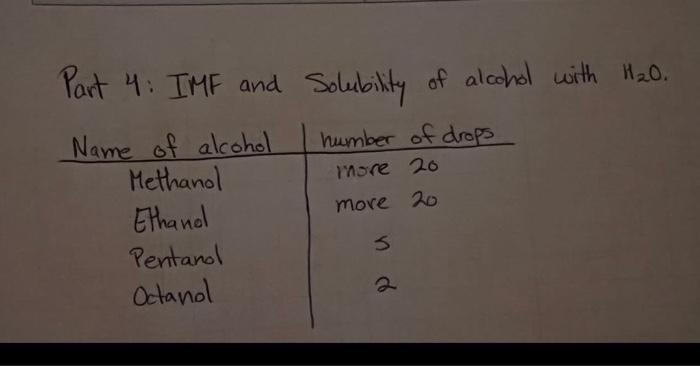 Part 4: IMF and Solubility of alcohol with H2O.
Name of alcohol number of drops
Methanol more 20
Ethanol more 20
Pentanol 5
Octanol 2